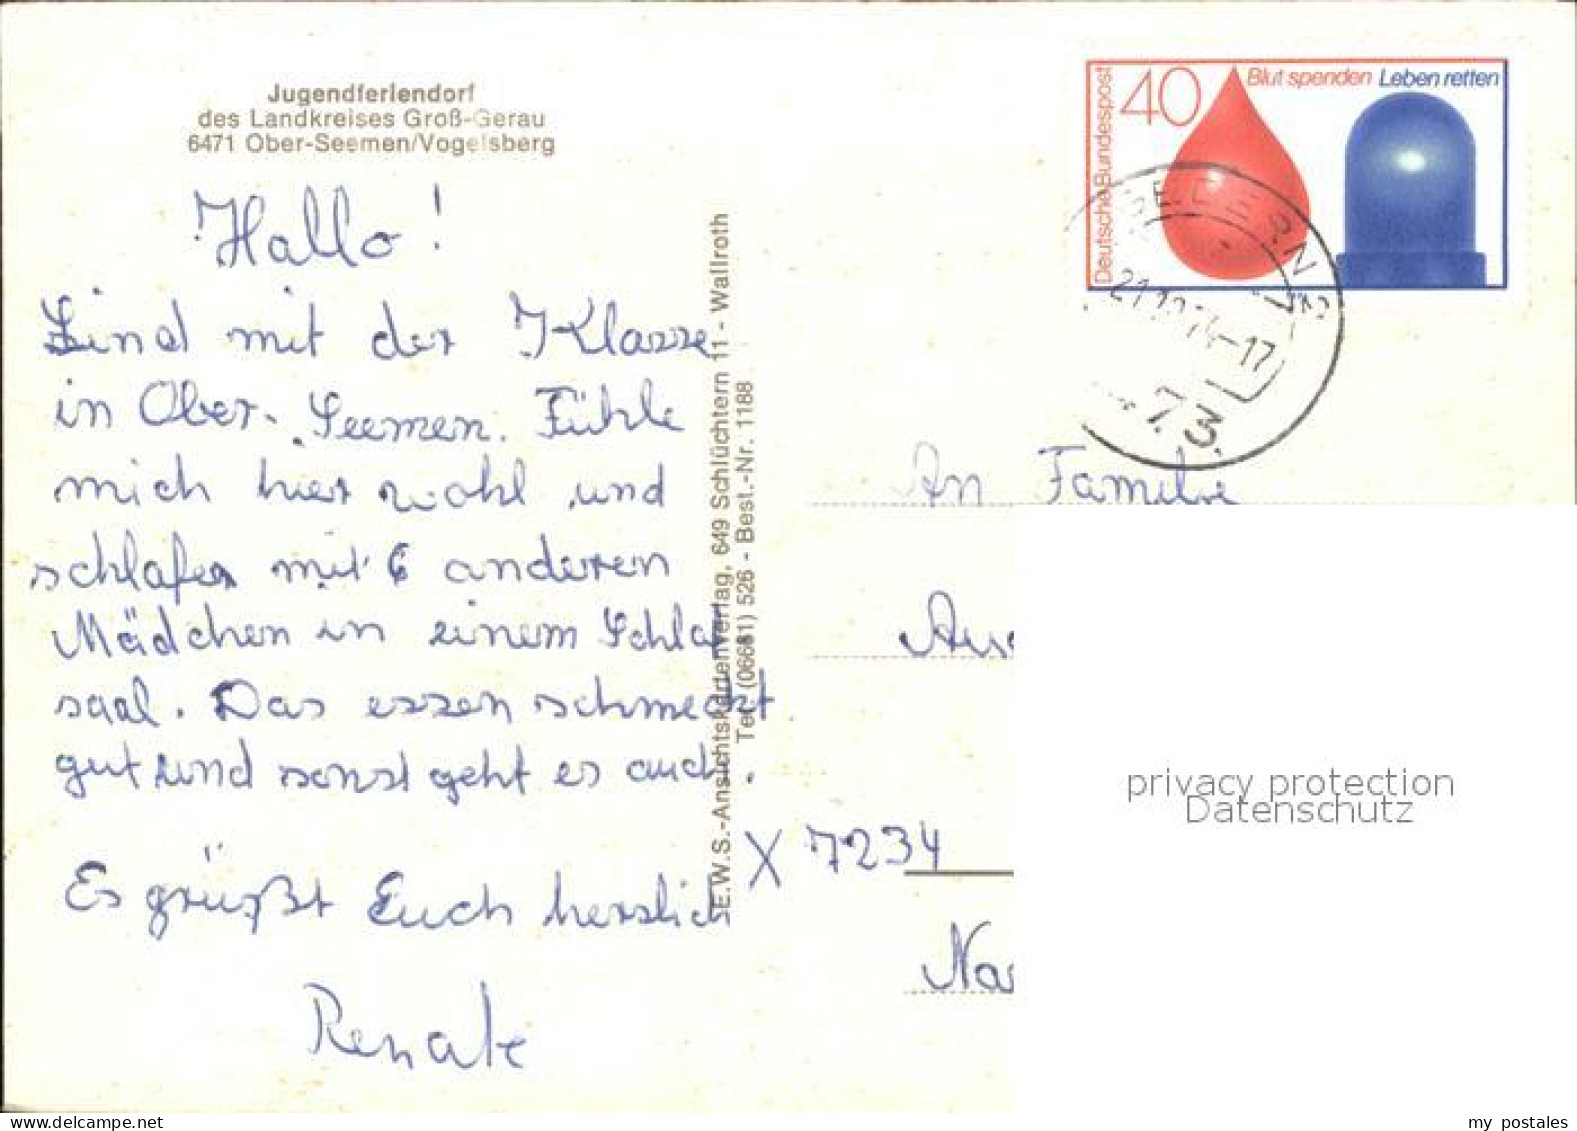 Jugendferiendorf
des Landkreises Groß-Gerau
6471 Ober-Seemen/Vogelsberg
Hallo!
Sind mit der Klasse
in Ober-Seemen. Fühle
mich hier wohl und
schlafen mit 6 anderen
Mädchen in einem Schlaf
saal. Das essen schmeckt
gut und sonst geht es auch.
Es grüßt Euch herzlich
Renate
E.W.S.-Ansichtskartenverlag, 649 Schlüchtern 11 - Wallroth
Tel. (06661) 526 - Best.-Nr. 1188
Deutsche Bundespost
40
Blut spenden Leben retten
-17
73
An Familie
X 7234
privacy protection
Datenschutz
my postales